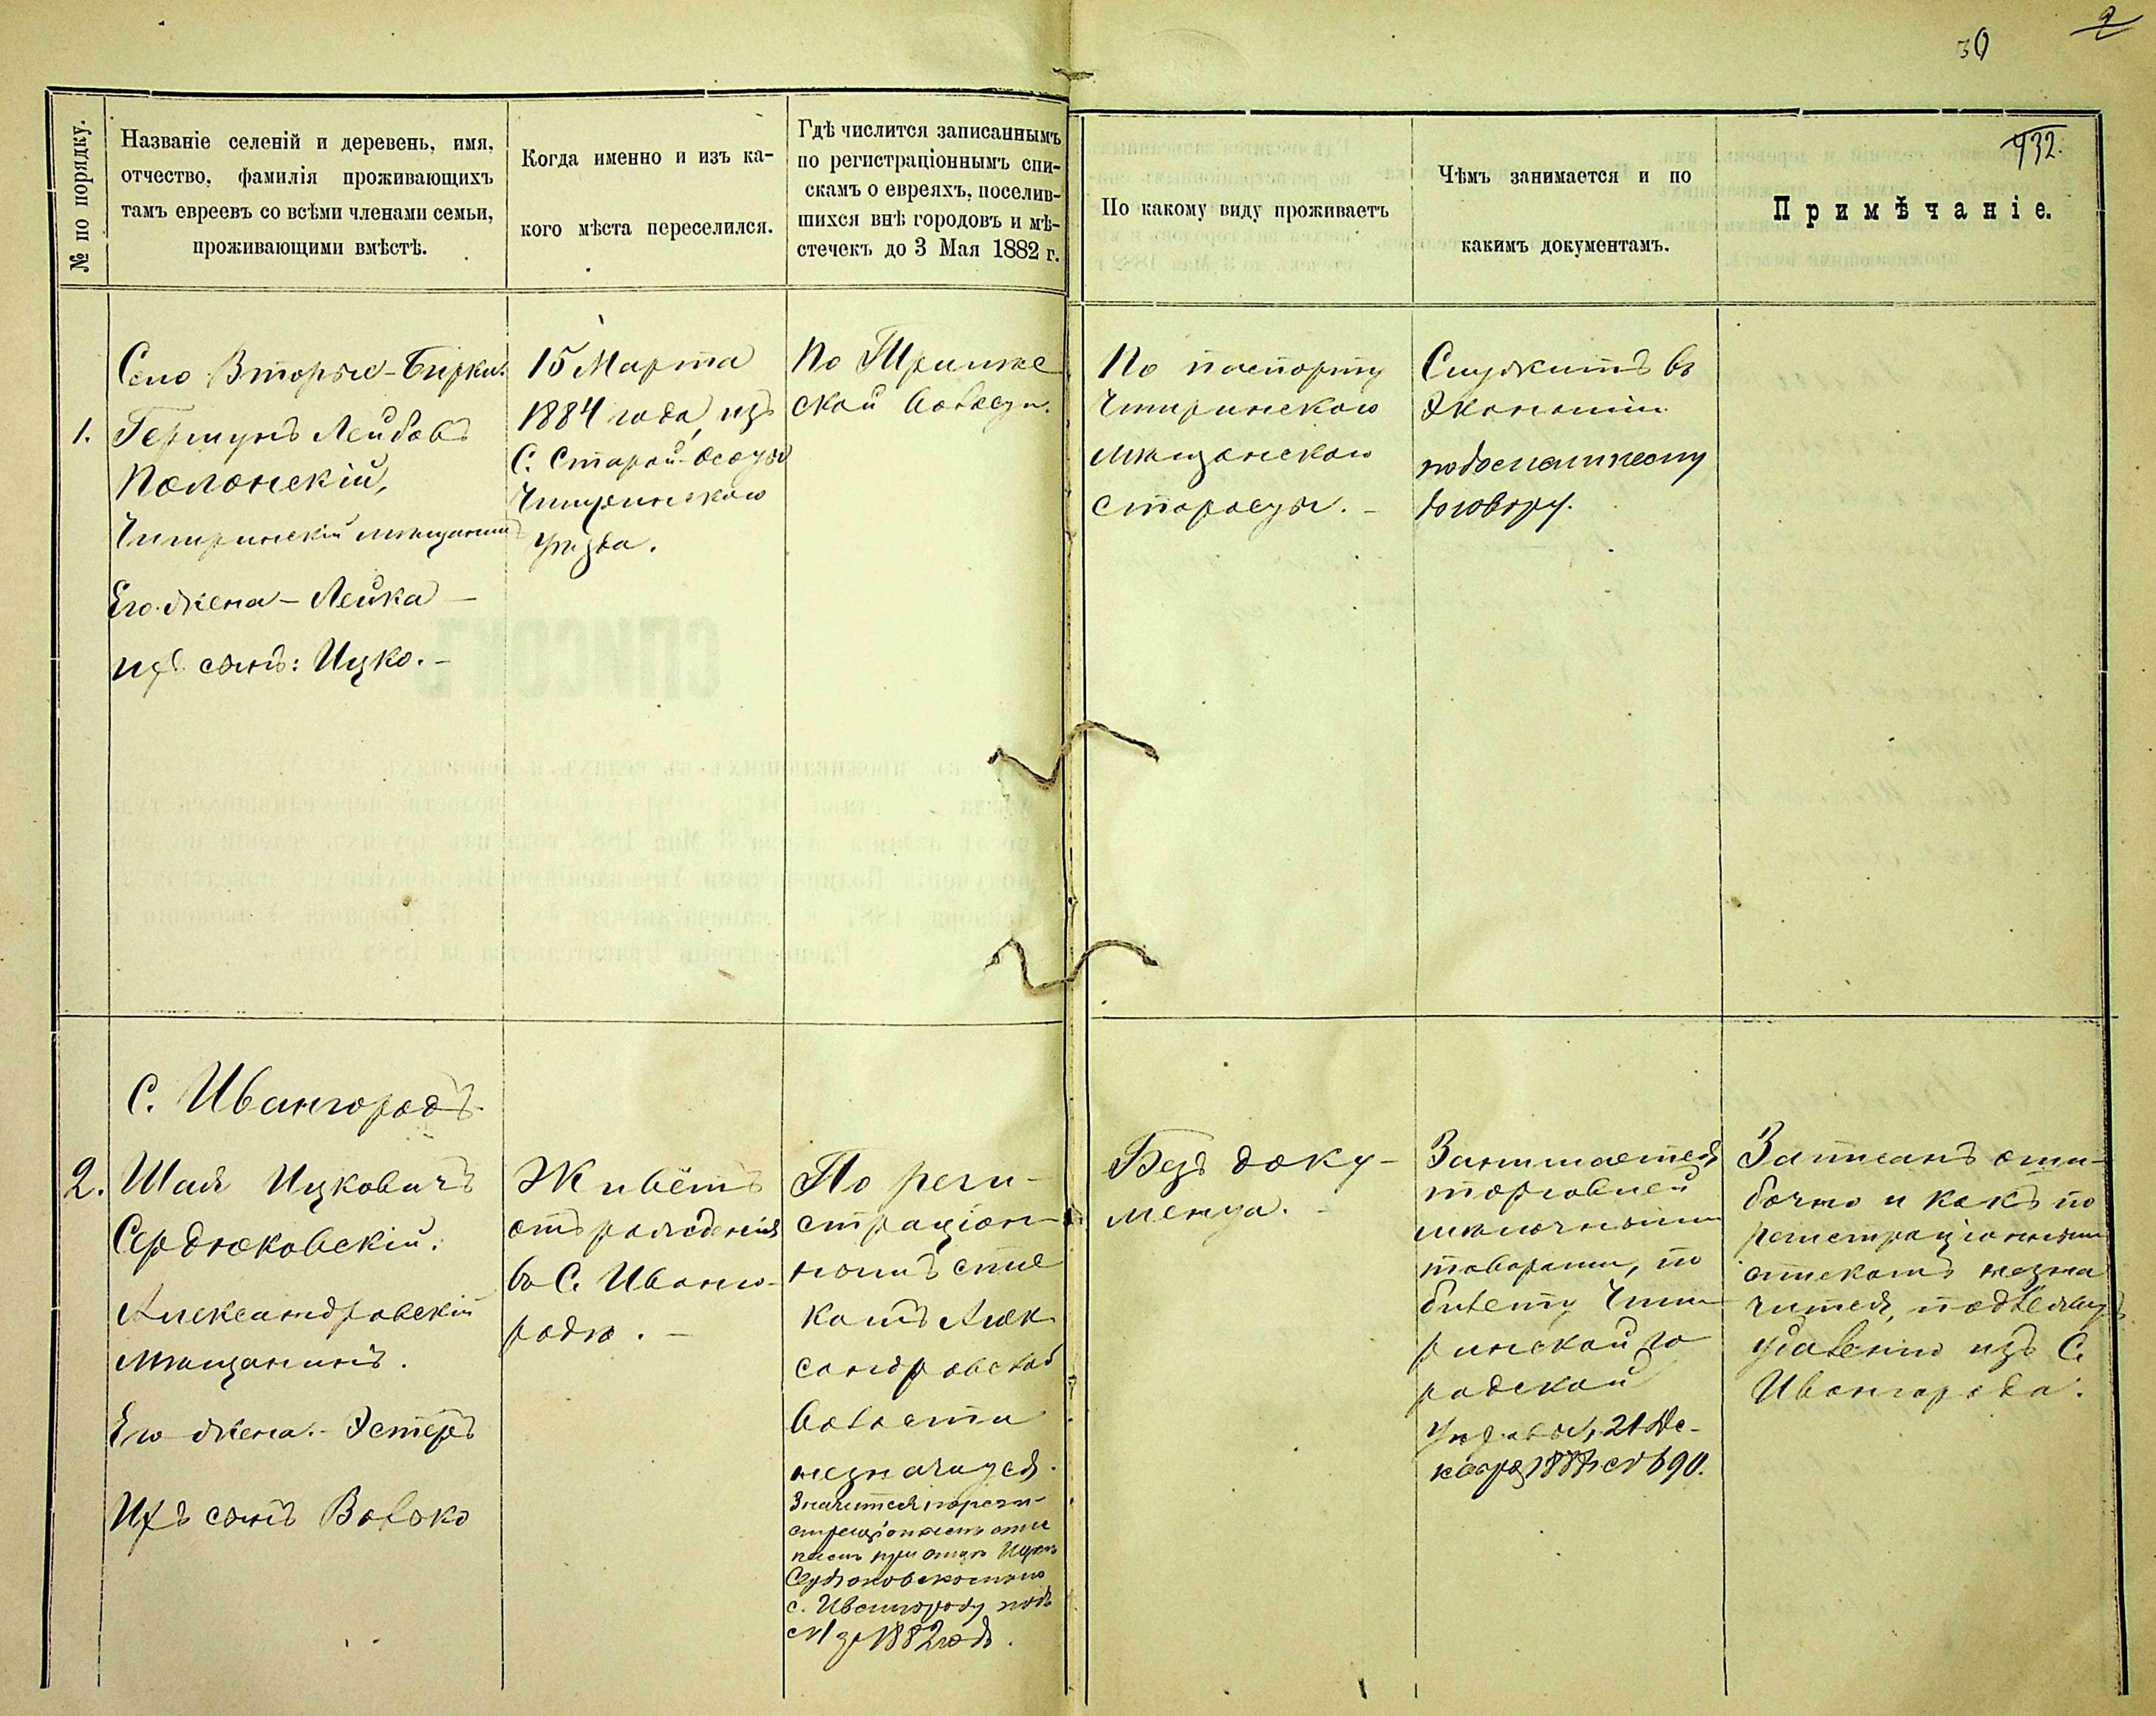 2
30
432.
№ по порядку.
Названіе селеній и деревень, имя,
отчество, фамилія проживающихъ
тамъ евреевъ со всѣми членами семьи,
проживающими вмѣстѣ.
Когда именно и изъ ка-
кого мѣста переселился.
Гдѣ числится записаннымъ
по регистраціоннымъ спи-
скамъ о евреяхъ, поселив-
шихся внѣ городовъ и мѣ-
стечекъ до 3 Мая 1882 г.
По какому виду проживаетъ
Чѣмъ занимается и по
какимъ документамъ.
Примѣчаніе.
Село Вторые-Бирки.
1. Гершунъ Лейбовъ
Полонскій,
Чигиринскій мѣщанинъ
Его жена - Лейка -
ихъ сынъ: Ицко. -
15 Марта
1884 года, изъ
С. Старой-Осоты
Чигиринскаго
уѣзда.
По
ской волости.
По паспорту
Чигиринскаго
мѣщанскаго
старосты. -
Служитъ въ
Экономіи
по домашнему
договору.
С. Ивангородъ.
2. Шая Ицковичъ
Сердюковскій.
Александровскій
мѣщанинъ.
Его жена. - Эстеръ
Ихъ сынъ Волько
Живётъ
отъ рожденія
въ С. Иванго-
родѣ. -
По реги-
страціон-
нымъ спис
камъ Алек
сандровской
волости
незначится.
Значится по реги-
страціоннымъ спис
камъ при отцѣ Ицкѣ
Сердюковскомъ по
с. Ивангороду подъ
№ за 1882 годъ.
Безъ доку-
мента. -
Занимается
торговлей
мѣлочными
товарами, по
билету Чиги
ринской го
родской
Управы, 21 Де-
кабря № 690.
Записанъ оши-
бочно и какъ по
регистраціоннымъ
спискамъ незна
чится, подлежитъ
удаленію изъ С.
Ивангорода.